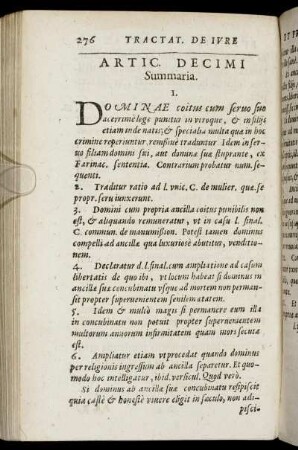 276 TRACTAT. DE IVRE
ARTIC. DECIMI
Summaria.
1.
DOMINAE coitus cum seruo suo
acerrimè lege punitur in vtroque, & in filijs
etiam inde natis; & specialia multa quæ in hoc
crimine reperiuntur remissiuè traduntur. Idem in ser-
uo filiam domini sui, aut dominam suam stuprante, ex
Farinac. sententia. Contrarium probatur num. se-
quenti.
2. Traditur ratio ad l. vnic. C. de mulier. quæ se
propr. seru iunxerunt.
3. Domini cum propria ancilla coitus punibilis non
est, & aliquando remuneratur, vt in casu l. final.
C. commun. de manumission. Potest tamen dominus
compelli ad ancillæ qua luxuriosè abutitur, venditio-
nem.
4. Declaratur d. l. final. cum ampliatione ad casum
libertatis de quo ibi, vt locum habeat si dominus in
ancillæ suæ concubinatu vsque ad mortem non perman-
sit propter superuenientem senilem ætatem.
5. Idem & multò magis si permanere cum illa
in concubinatu non potuit propter superuenientem
multorum annorum infirmitatem quam mors secuta
est.
6. Ampliatur etiam vt procedat quando dominus
per religionis ingressum ab ancilla separetur. Et quo-
modo hoc intelligatur, ibid. versicul. Quod verò.
Si dominus ab ancillæ suæ concubinatu respiscit
quia castè & honestè viuere elegit in sæculo, non adi-
pisci-